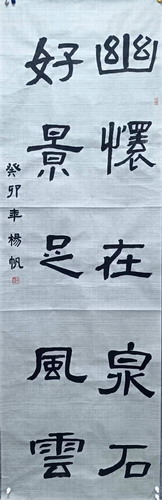 幽懷在泉石
好景足風雲
癸卯年楊帆